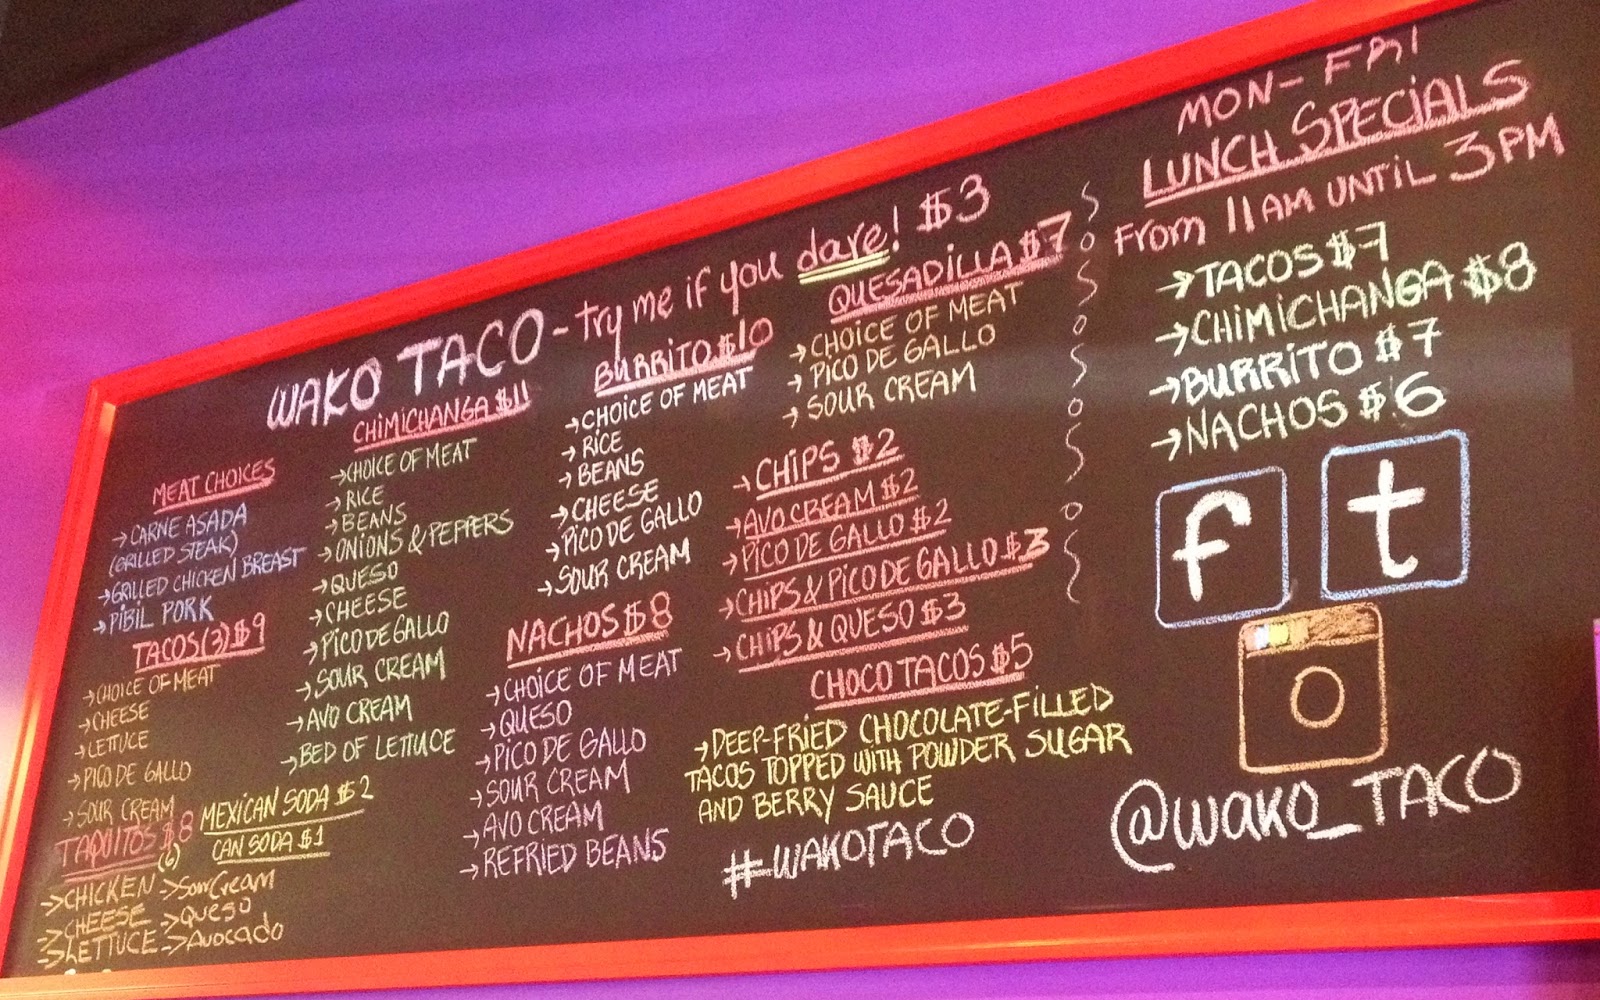 WAKO TACO - try me if you dare! $3
MEAT CHOICES
→CARNE ASADA
(GRILLED STEAK)
→GRILLED CHICKEN BREAST
→PIBIL PORK
TACOS (3) $9
→CHOICE OF MEAT
→CHEESE
→LETTUCE
→PICO DE GALLO
→SOUR CREAM
TAQUITOS $8
(6)
→CHICKEN →Sour Cream
→CHEESE →Queso
→LETTUCE →Avocado
MEXICAN SODA $2
CAN SODA $1
CHIMICHANGA $11
→CHOICE OF MEAT
→RICE
→BEANS
→ONIONS & PEPPERS
→QUESO
→CHEESE
→PICO DE GALLO
→SOUR CREAM
→AVO CREAM
→BED OF LETTUCE
BURRITO $10
→CHOICE OF MEAT
→RICE
→BEANS
→CHEESE
→PICO DE GALLO
→SOUR CREAM
NACHOS $8
→CHOICE OF MEAT
→QUESO
→PICO DE GALLO
→SOUR CREAM
→AVO CREAM
→REFRIED BEANS
QUESADILLA $7
→CHOICE OF MEAT
→PICO DE GALLO
→SOUR CREAM
→CHIPS $2
→AVO CREAM $2
→PICO DE GALLO $2
→CHIPS & PICO DE GALLO $3
→CHIPS & QUESO $3
CHOCO TACOS $5
→DEEP-FRIED CHOCOLATE-FILLED
TACOS TOPPED WITH POWDER SUGAR
AND BERRY SAUCE
#WAKOTACO
MON-FRI
LUNCH SPECIALS
From 11AM UNTIL 3PM
→TACOS $7
→CHIMICHANGA $8
→BURRITO $7
→NACHOS $6
f t
@WAKO_TACO